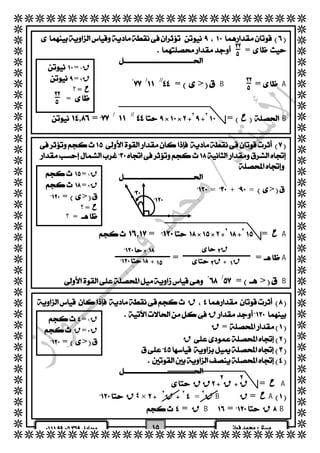 (٦) قوتان مقدارهما ١٠ ، ٩ نيوتن تؤثران فى نقطة مادية وقياس الزاوية بينهما ى
حيث ظاى = ٢٢/٥ أوجد مقدار محصلتهما .
الحــــــل
ق١ = ١٠ نيوتن
ق٢ = ٩ نيوتن
ح = ؟
ظاى = ٢٢/٥
A ظاى = ٢٢/٥ B ق(> ى) = ٤٤// ١١/ ٧٧°
B المحصلة (ح) = √١٠² + ٩² + ٢×١٠×٩ حتا ٤٤// ١١/ ٧٧° = ١٤,٨٦ نيوتن
(٧) أثرت قوتان فى نقطة مادية فإذا كان مقدار القوة الأولى ١٥ ث كجم وتؤثر فى
إتجاه الشرق ومقدار الثانية ١٨ ث كجم وتؤثر فى اتجاه ٣٠° غرب الشمال إحسب مقدار
وإتجاه المحصلة
الحــــــل
ق١ = ١٥ ث كجم
ق٢ = ١٨ ث كجم
ق(> ى) = ١٢٠°
ح = ؟
ظاهـ = ؟
٣٠°
١٢٠°
ق(> ى) = ٩٠ + ٣٠ = ١٢٠°
A ح = √١٥² + ١٨² + ٢×١٥×١٨ حتا ١٢٠° = ١٦,١٧ ث كجم
A ظاهـ = ق٢ حاى / ق١ + ق٢ حتاى = ١٨ × حا ١٢٠° / ١٥ + ١٨ حتا ١٢٠°
B ق(> هـ) = ٥٧/ ٦٨° وهى قياس زاوية ميل المحصلة على القوة الأولى
(٨) أثرت قوتان مقدارهما ٤ ، ق ث كجم فى نقطة مادية فإذا كان قياس الزاوية
بينهما ١٢٠° أوجد مقدار ق فى كل من الحالات الآتية .
(١) مقدار المحصلة = ق
(٢) إتجاه المحصلة عمودى على ق
(٣) إتجاه المحصلة يميل بزاوية قياسها ٤٥° على ق
(٤) إتجاه المحصلة ينصف الزاوية بين القوتين .
ق١ = ٤ ث كجم
ق٢ = ق ث كجم
ق(> ى) = ١٢٠°
الحــــــل
A ح = √ق١² + ق٢² + ٢ق١ق٢ حتاى
(١) A ح = ق B ق² = ٤² + ق² + ٢×٤ ق حتا ١٢٠°
B ٨ ق حتا ١٢٠° = -١٦ B ق = ٤ ث كجم
١٥